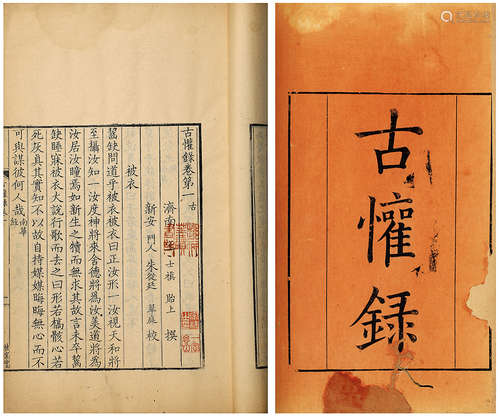 古懽錄
古懽錄卷第一 古
濟南 士禛 貽上 撰
新安 門人 朱從延 翠庭 校
被衣
齧缺問道乎被衣被衣曰正汝形一汝視天和將
至攝汝知一汝度神將來舍德將為汝美道將為
汝居汝瞳焉如新生之犢而無求其故言未卒齧
缺睡寐被衣大說行歌而去之曰形若槁骸心若
死灰真其實知不以故自持媒媒晦晦無心而不
可與謀彼何人哉 南華經